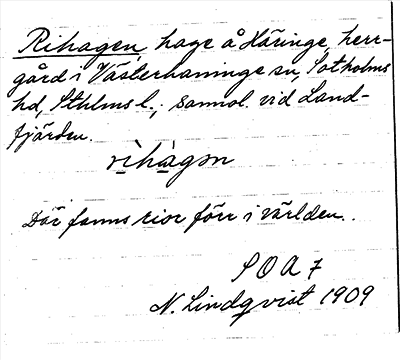 Rihagen, hage å Häringe, herr-
gård i Västerhaninge sn, Sotholms
hd, Sthlms l.; sannol. vid Land-
fjärden.
rìhàgən
Där fanns rior förr i världen.
SOA 7
N. Lindqvist 1909